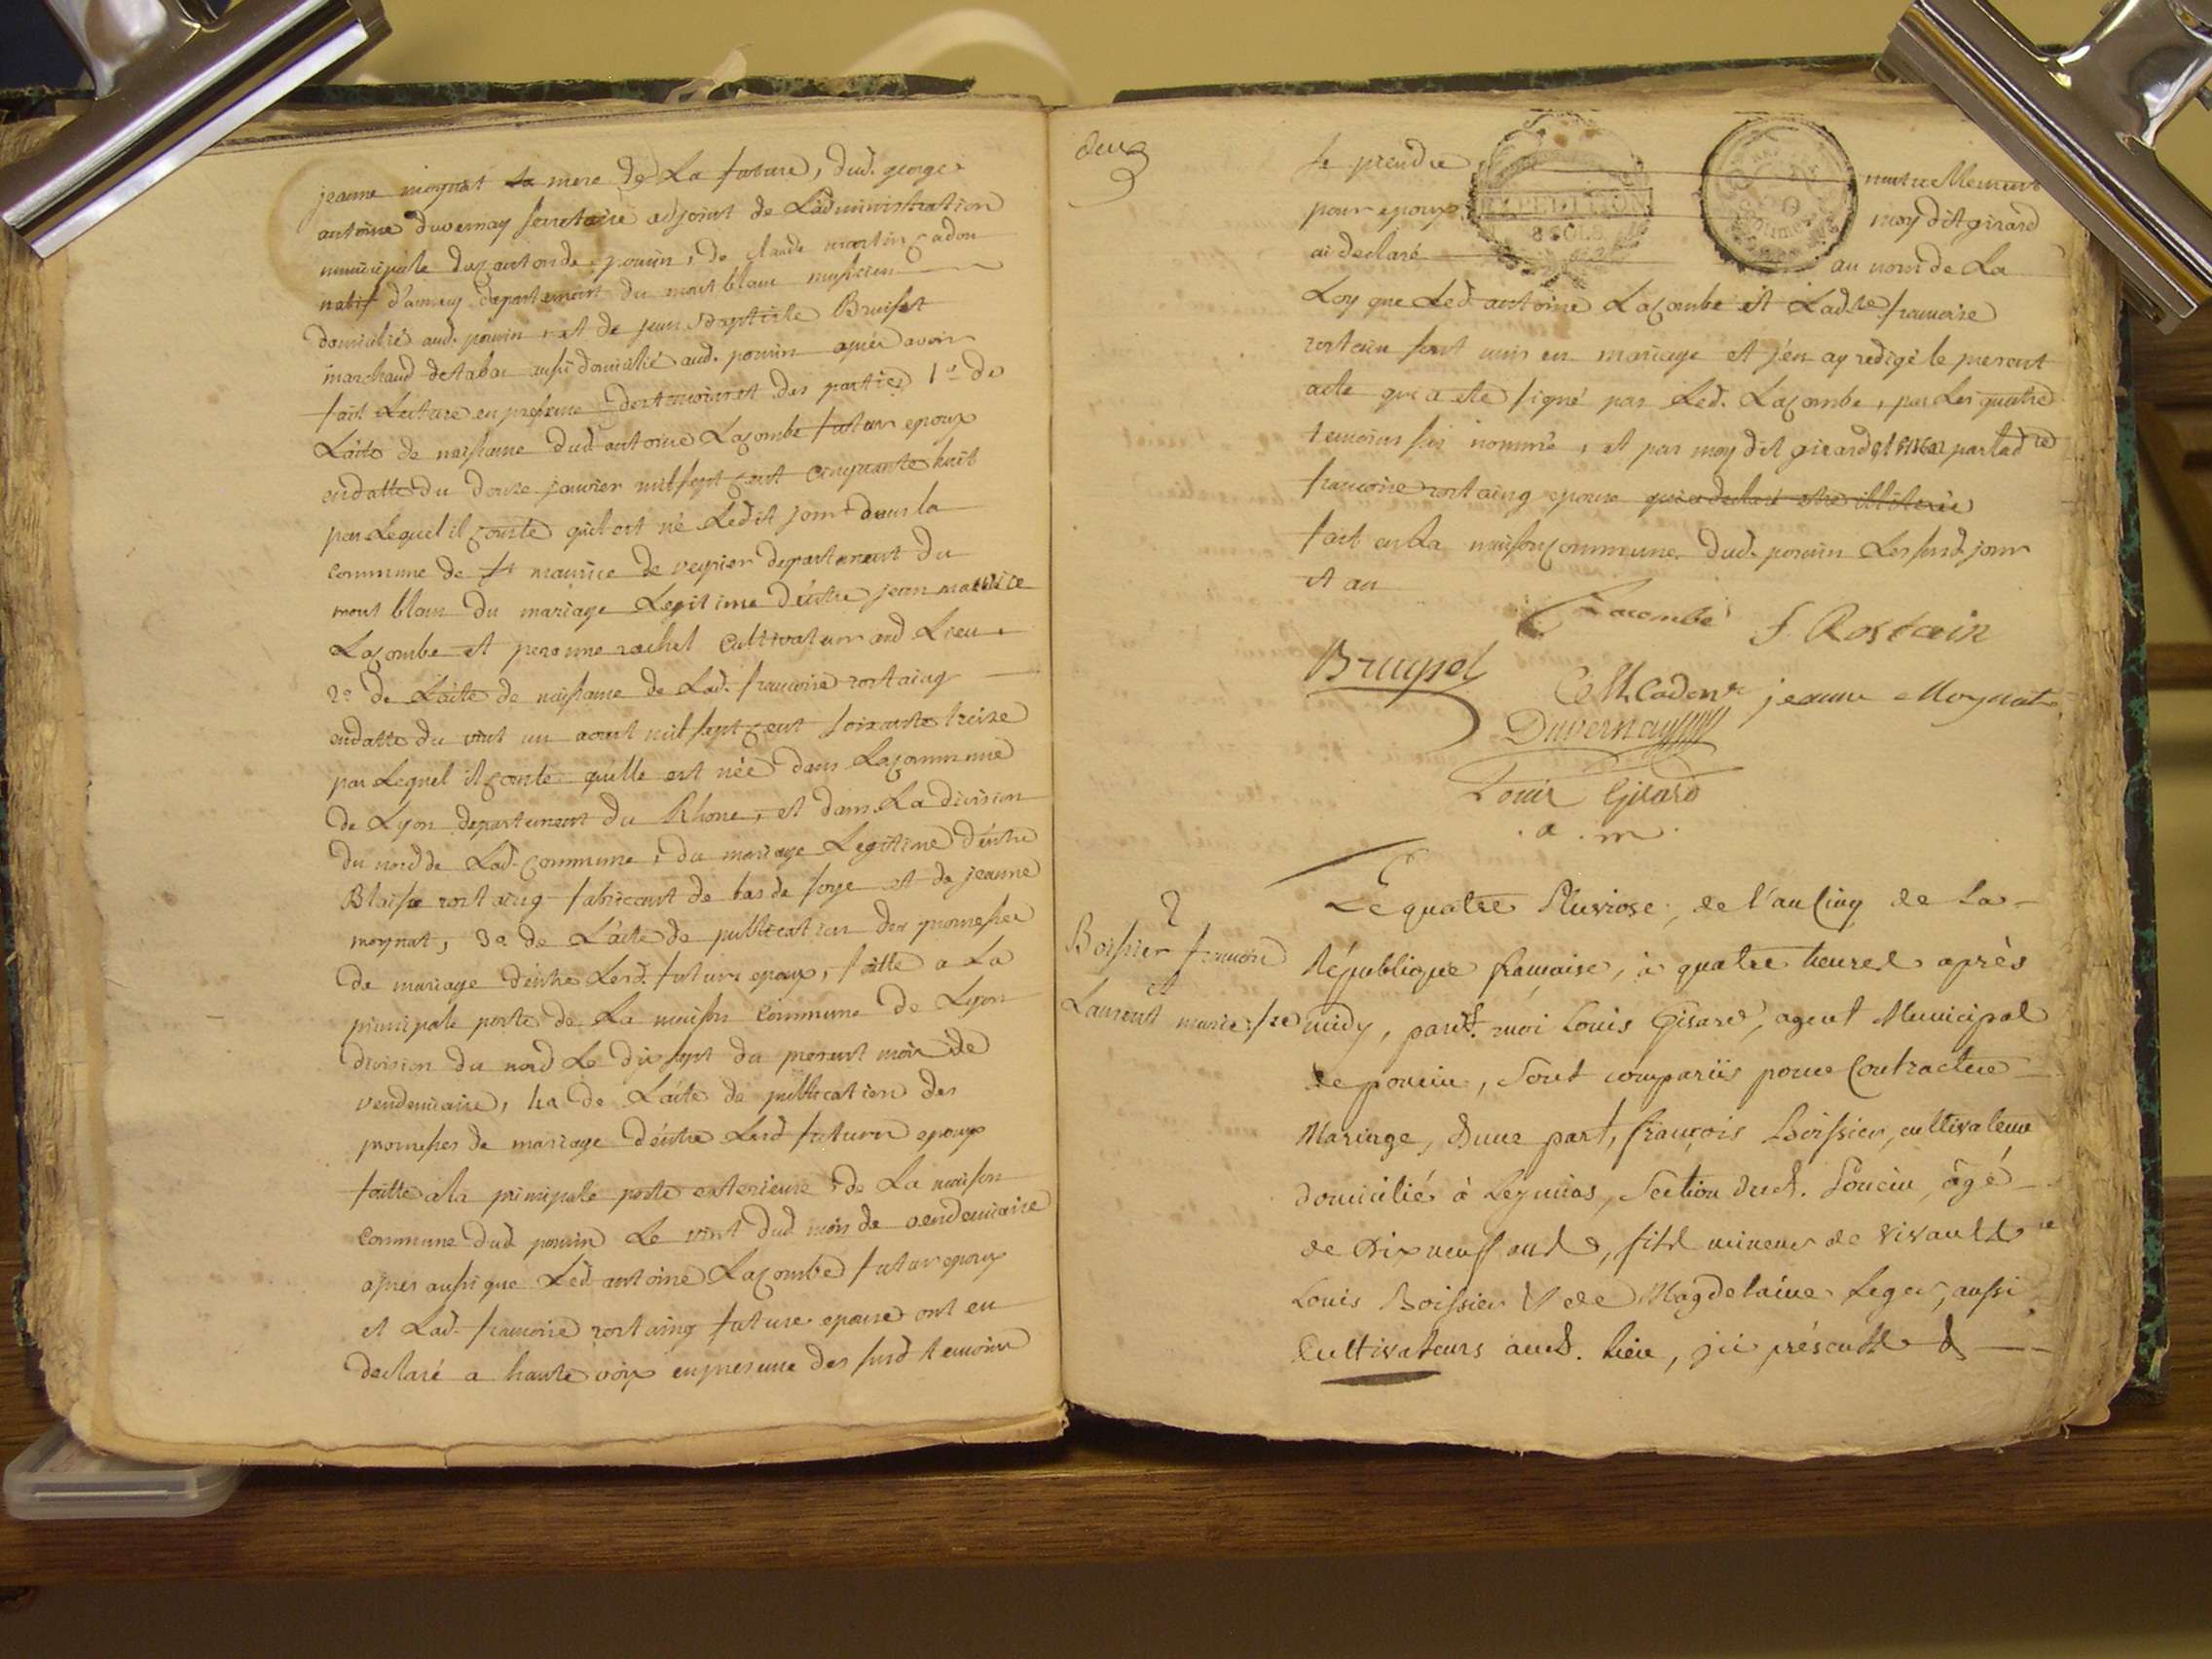 jeanne moynat la mere de La future, dud. george
antoine duvernay secretaire adjoint de L'administration
municipale du canton de poncin, de claude martin cadon
natif d'annecy departement du mont blanc musicien
domicilié aud. poncin, et de jean Baptiste Bruisset
marchand de tabac aussi domicilié aud. poncin apres avoir
fait Lecture en presence des temoins et des parties 1º de
L'acte de naissance dud. antoine Lacombe futur epoux
en datte du douze janvier mil sept cent cinquante huit
par Lequel il conste qu'il est né Ledit jour dans la
commune de st maurice de veyrier departement du
mont blanc du mariage Legitime d'entre jean maurice
Lacombe et peronne rachel Cultivateur aud Lieu.
2º de L'acte de naissance de Lad. francoise rostaing
en datte du vint un aout mil sept cent soixante treize
par Lequel il conste qu'elle est née dans La commune
de Lyon departement du Rhone, et dans La division
du nord de Lad. commune, du mariage Legitime d'entre
Blaise rostaing fabricant de bas de soye et de jeanne
moynat, 3º de L'acte de publication des promesses
de mariage d'entre Lesd. futurs epoux, faitte a La
principale porte de La maison Commune de Lyon
division du nord Le dix sept du present mois de
vendemiaire, 4º de L'acte de publication des
promesses de mariage d'entre Lesd futurs epoux
faitte a la principale porte exterieure de La maison
Commune dud poncin Le vint dud mois de vendemiaire
apres aussi que Led antoine Lacombe futur epoux
et Lad. francoise rostaing future epouse ont eu
declaré a haute voix en presence des susd temoins
deux
se prendre mutuellement
EXPEDITION
8 SOLS
pour epoux, moy dit girard
ai declaré au nom de La
Loy que Led antoine Lacombe et Ladte francoise
rostain sont unis en mariage et j'en ay redigé le present
acte qui a ete signé par Led. Lacombe, par Les quatre
temoins sus nommé, et par moy dit girard et encor par lad te
francoise rostaing epouse qui a declaré etre illiteree
fait en La maison commune dud. poncin Les susd. jour
et an
Lacombe f. Rostain
Bruysset
C M Cadon jeanne Moynat
Duvernay
Louis Girard
. a . m .
2
Boissier francois
et
Laurent marie fse
Le quatre Pluviose, de l'an cinq de La
République française, à quatre heures après
midy, pardt. moi Louis Girard, agent Municipal
de poncin, Sont comparüs pour Contracter
Mariage, Dune part, françois Boissier, cultivateur
domicilié à Leymias, Section dud. Poncin, âgé
de Dix neuf ans, fils mineur de vivants
Louis Boissier & de Magdelaine Leger, aussi
Cultivateurs aud. lieu, ici présents &